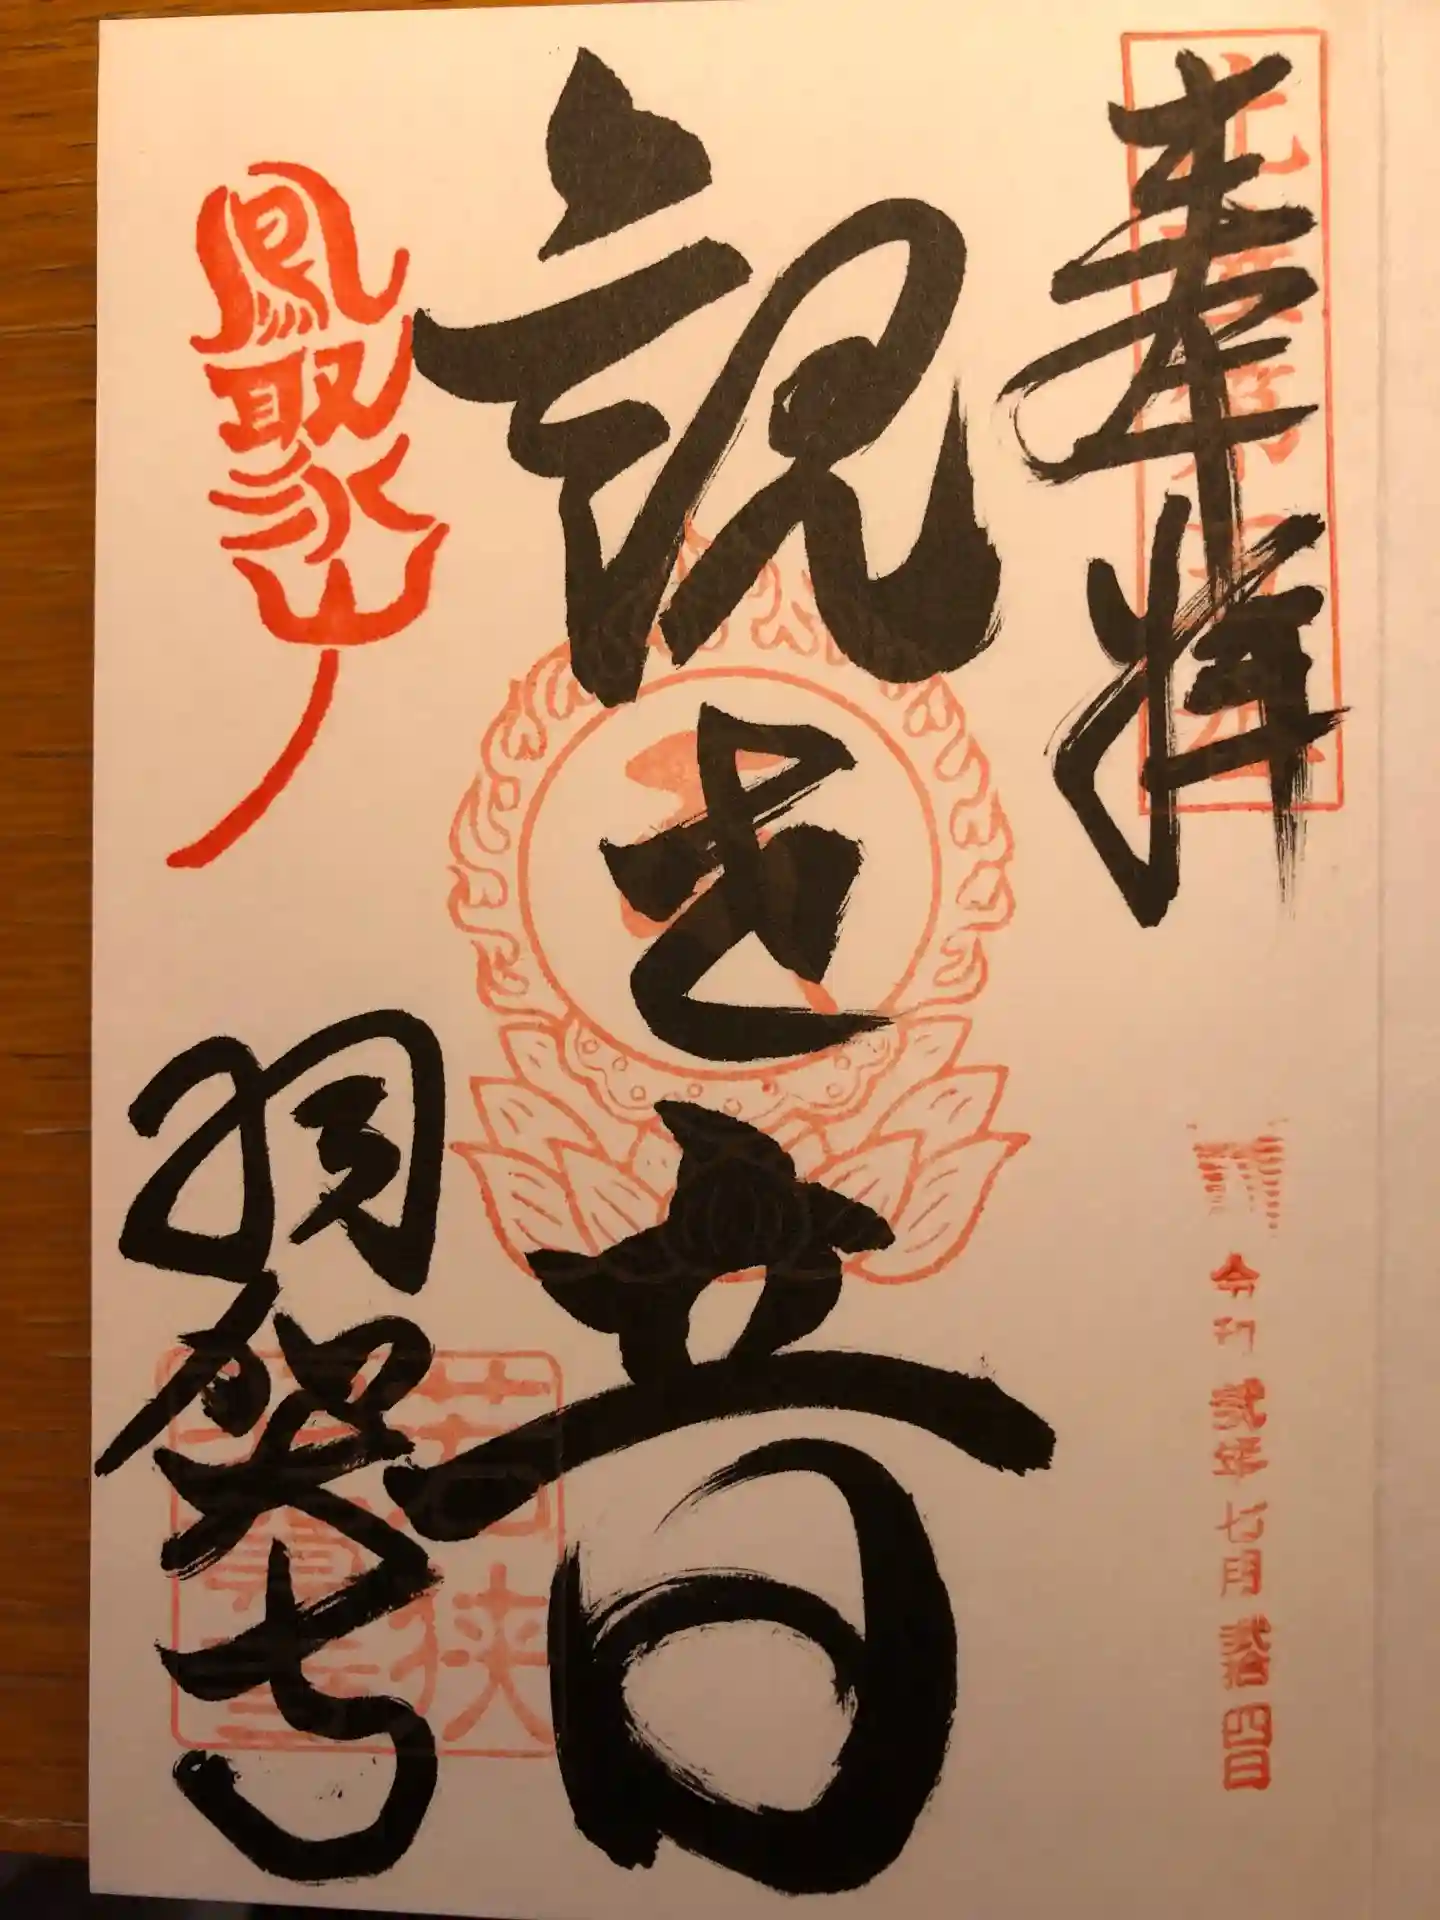 奉拝
令和弐年七月弐拾四日
観世音
鳳聚山
羽賀寺
若狭